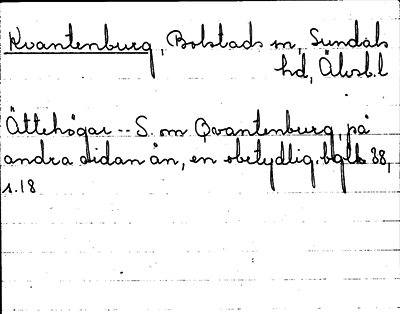 Kvantenburg, Bolstads sn, Sundals
hd, Älvsb.l
Ättehögar -- S. om Qvantenburg, på
andra sidan ån, en obetydlig. bglb 38,
s.18